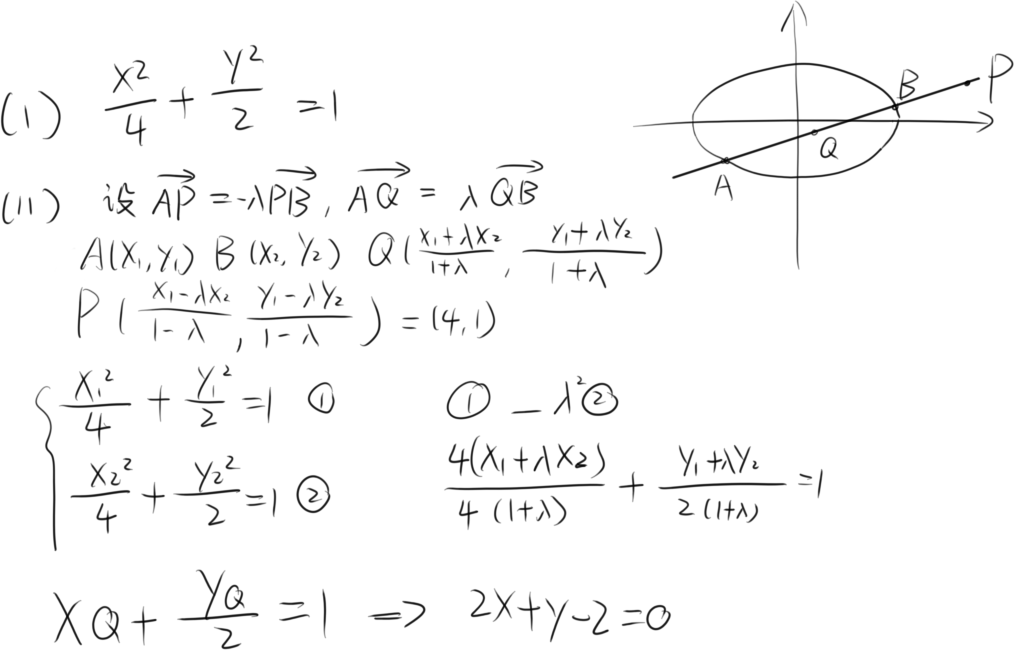 (1) x²/4 + y²/2 = 1
(11) 设 \overrightarrow{AP} = -λ\overrightarrow{PB}, \overrightarrow{AQ} = λ\overrightarrow{QB}
A(x₁,y₁) B(x₂,y₂) Q((x₁+λx₂)/(1+λ), (y₁+λy₂)/(1+λ))
P((x₁-λx₂)/(1-λ), (y₁-λy₂)/(1-λ)) = (4,1)
{ x₁²/4 + y₁²/2 = 1 ① ① - λ²②
x₂²/4 + y₂²/2 = 1 ② 4(x₁+λx₂)/4(1+λ) + (y₁+λy₂)/2(1+λ) = 1
xQ + yQ/2 = 1 => 2x+y-2=0
A
Q
B
P